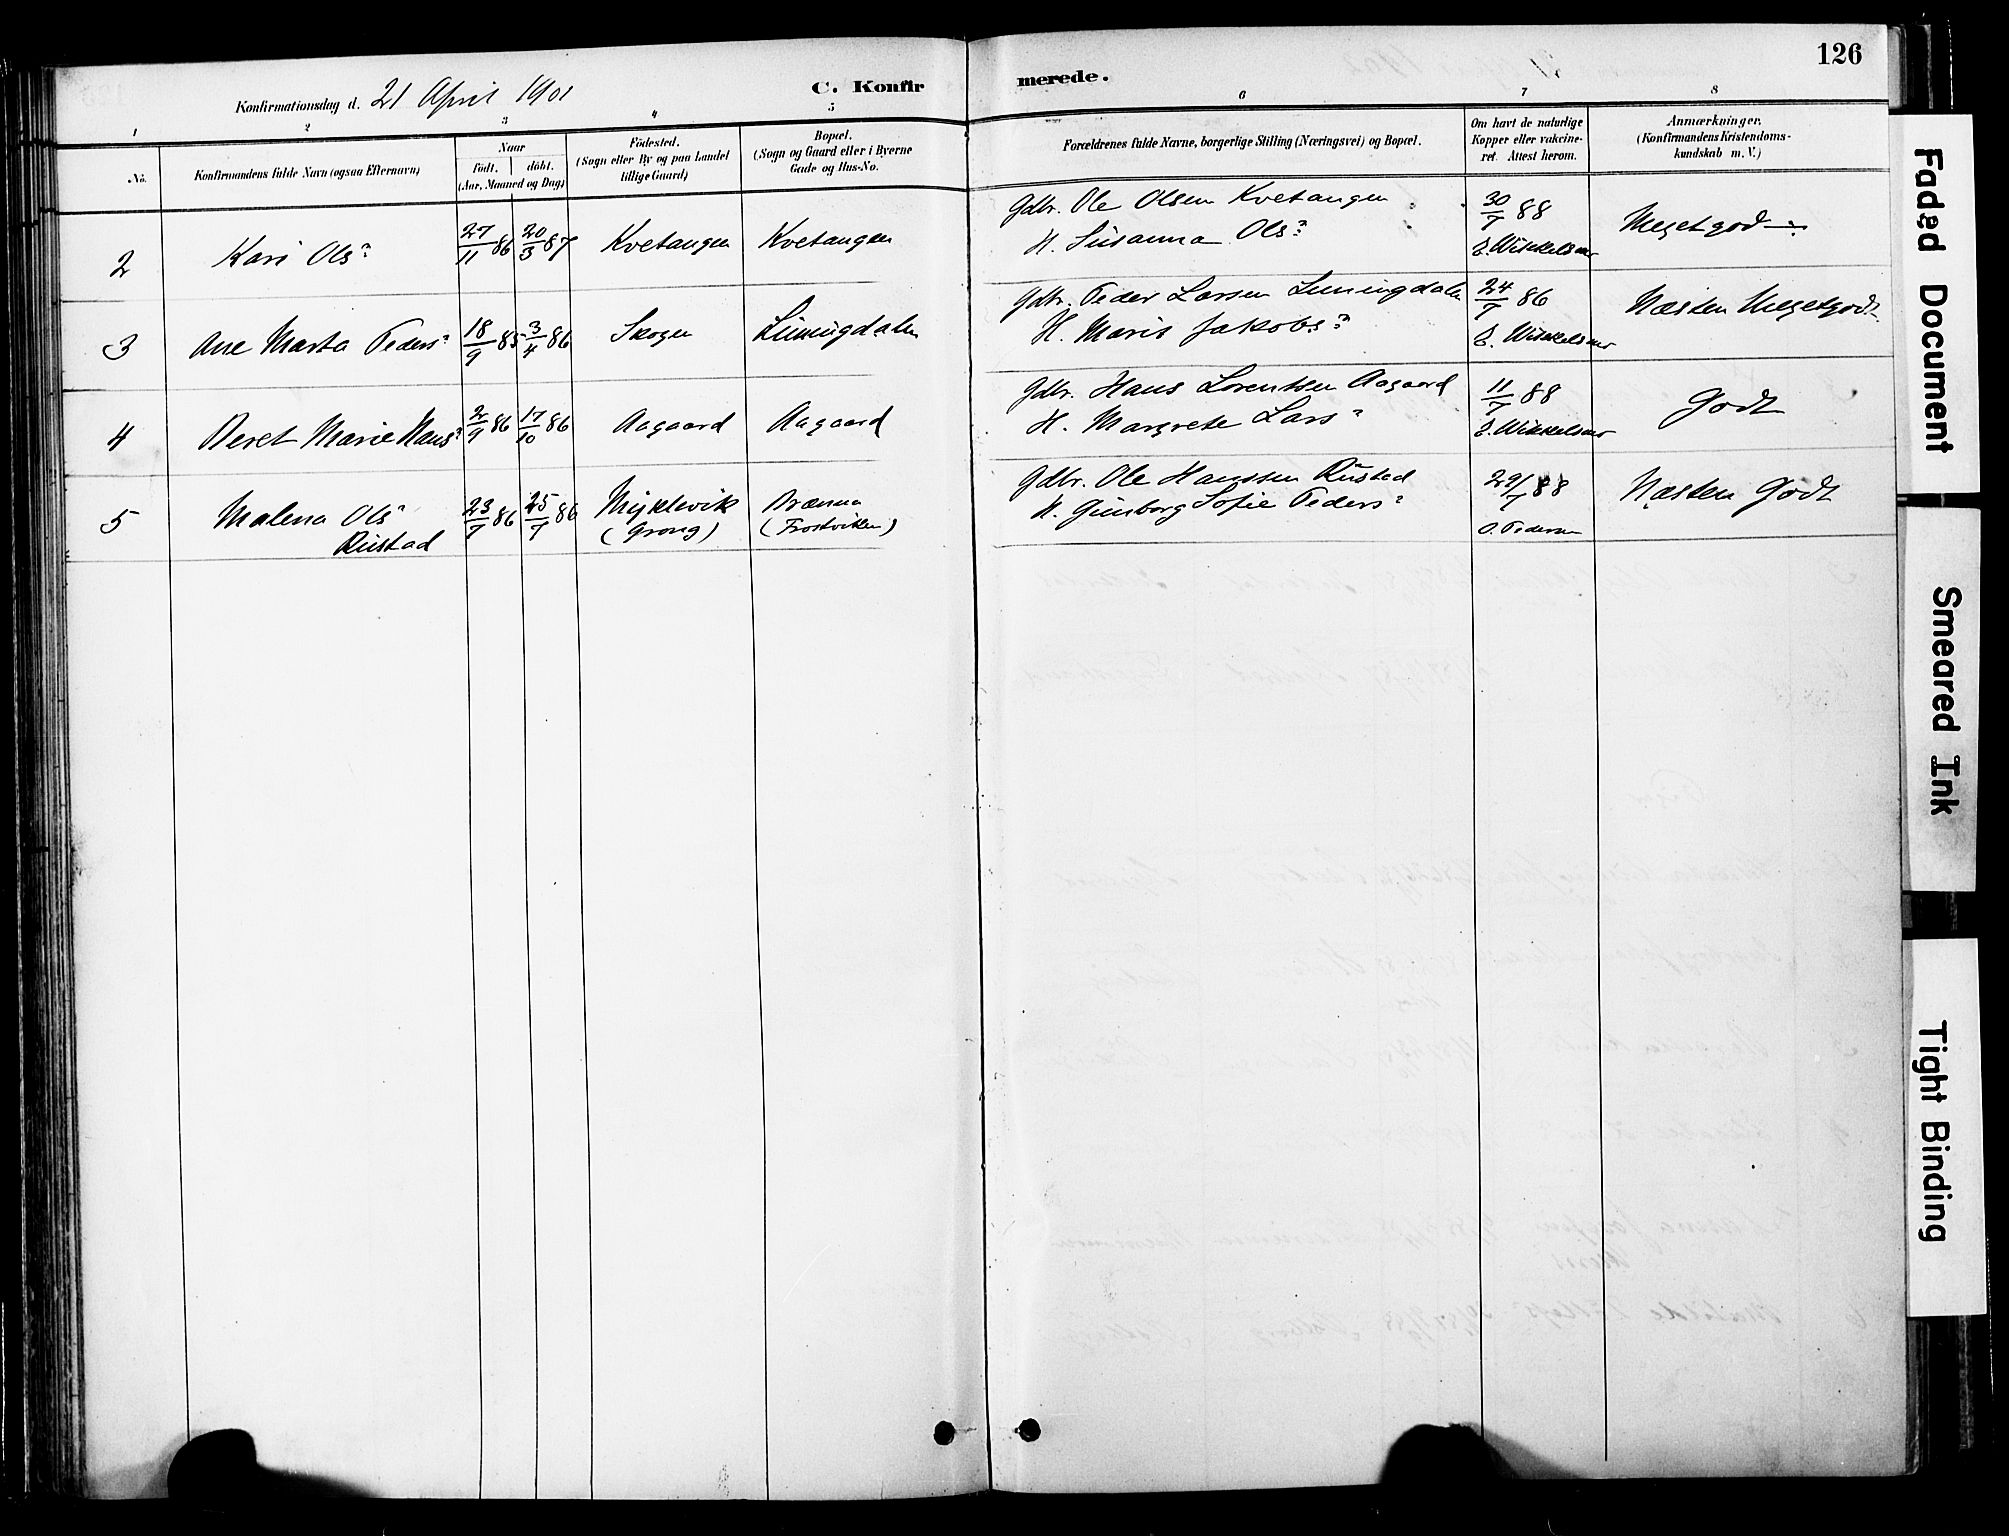 126
Konfirmationsdag d. 21 April 1901
C. Konfirmerede.
1 2 3 4 5 6 7 8
No.
Konfirmandens fulde Navn (ogsaa Efternavn)
Naar
Født. døbt.
(Aar, Maaned og Dag)
Fødested.
(Sogn eller By og paa Landet
tillige Gaard)
Bopæl.
(Sogn og Gaard eller i Byerne
Gade og Hus-No.
Forældrenes fulde Navne, borgerlige Stilling (Næringsvei) og Bopæl.
Om havt de naturlige
Kopper eller vakcine-
ret. Attest herom.
Anmærkninger.
(Konfirmandens Kristendoms-
kundskab m. V.)
2 Kari Olsᵈ 27/11 86 20/3 87 Kvetangen Kvetangen
Gdbr. Ole Olsen Kvetangen
H. Susanna Olsᵈ
30/7 88
Megetgodt
3 Ane Marta Pedersᵈ 18/9 85 3/4 86 Skogen Limingdalen
Gdbr. Peder Larsen Limingdalen
H. Maris Jakobsᵈ
24/7 86
Næsten Megetgodt
4 Beret Marie Hansᵈ 2/9 86 17/10 86 Aagaard Aagaard
Gdbr. Hans Lorentsen Aagaard
H. Margrete Larsᵈ
11/7 88
Godt
5 Malena Olsᵈ
Rustad
23/7 86 25/7 86
Myklevik
(Grong)
Brænna
(Frostviken)
Gdbr. Ole Hanssen Rustad
H. Gunborg Sofie Pedersᵈ
29/7 88
O. Pedersen
Næsten Godt
Faded Document
Smeared Ink
Tight Binding